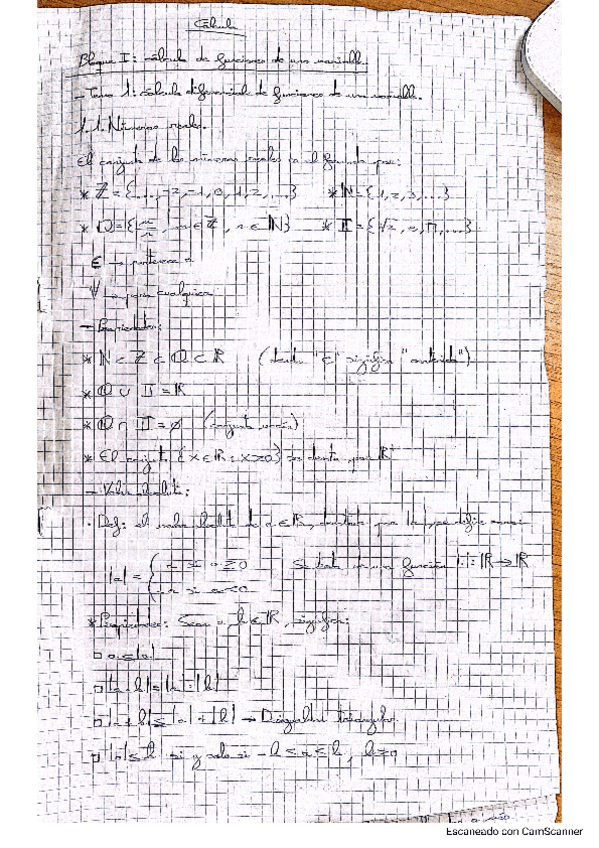 Cálculo
Bloque I: cálculo de funciones de una variable.
- Tema 1: cálculo diferencial de funciones de una variable.
1.1. Números reales.
El conjunto de los números reales es el formado por:
* ℤ = {..., -2, -1, 0, 1, 2, ...} * ℕ = {1, 2, 3, ...}
* ℚ = {m/n, m ∈ ℤ, n ∈ ℕ} * 𝕀 = {√2, e, π, ...}
∈ → pertenece a
∀ → para cualquier
- Propiedades:
* ℕ ⊂ ℤ ⊂ ℚ ⊂ ℝ (donde "⊂" significa "contenido")
* ℚ ∪ 𝕀 = ℝ
* ℚ ∩ 𝕀 = ∅ (conjunto vacío)
* El conjunto {x ∈ ℝ : x > 0} se denota por ℝ⁺
- Valor absoluto:
· Def: el valor absoluto de a ∈ ℝ, denotado por |a|, se define como:
|a| = { a si a ≥ 0 Se trata de una función |·|: ℝ → ℝ
-a si a < 0
* Propiedades: Sean a, b ∈ ℝ,
□ a ≤ |a|
□ |a·b| = |a|·|b|
□ |a+b| ≤ |a| + |b| → Desigualdad triangular
□ |a| ≤ b si y solo si -b ≤ a ≤ b, b > 0
Escaneado con CamScanner